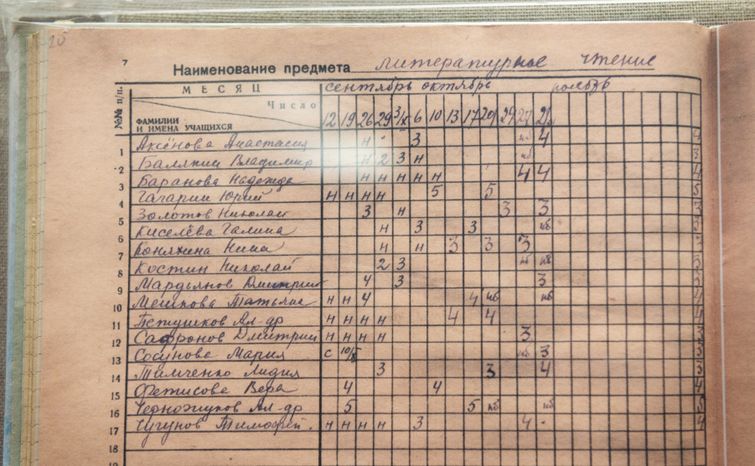 15
7
Наименование предмета литературное чтение
МЕСЯЦ сентябрь октябрь ноябрь
№№ п/п. Число
ФАМИЛИИ И ИМЕНА УЧАЩИХСЯ 12 19 26 29 3/X 6 10 13 17 20 24 27 21
1 Аксёнова Анастасия н 3 4 4
2 Балякин Владимир н 2 3 н нб 3
3 Баранова Надежда н н н н н 4 4 4
4 Гагарин Юрий н н н н 5 5 5
5 Золотов Николай 3 н 3 3 3
6 Киселёва Галина н 3 3 нб 3
7 Коняхина Нина н н 3 3 3 3
8 Костин Николай 2 3 нб нб
9 Мардьянов Дмитрий 4 3 3
10 Мешкова Татьяна н н 4 4 нб нб 4
11 Петушков Ал-др н н н н 4 4 4
12 Сафронов Дмитрий н н н н 3 3
13 Сосунова Мария с 10/X 3 3
14 Тимченко Лидия 3 3 4 3
15 Фетисова Вера 4 4 4
16 Черножуков Ал-др 5 5 нб нб 5
17 Чугунов Тимофей. н н н н 3 4 4
18